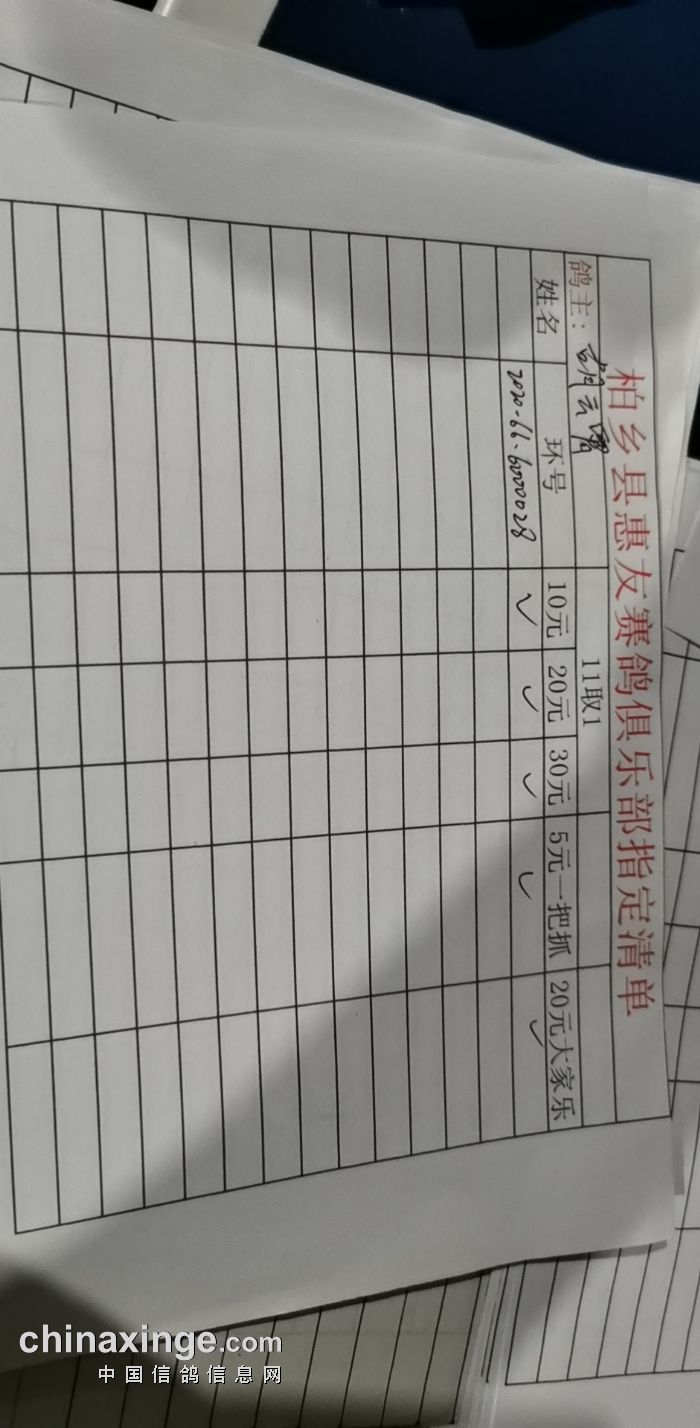 柏乡县惠友赛鸽俱乐部指定清单
鸽主：
11取1
姓名 环号 10元 20元 30元 5元一把抓 20元大家乐
2020-66-6000028 ✓ ✓ ✓ ✓ ✓
chinaxinge.com
中国信鸽信息网